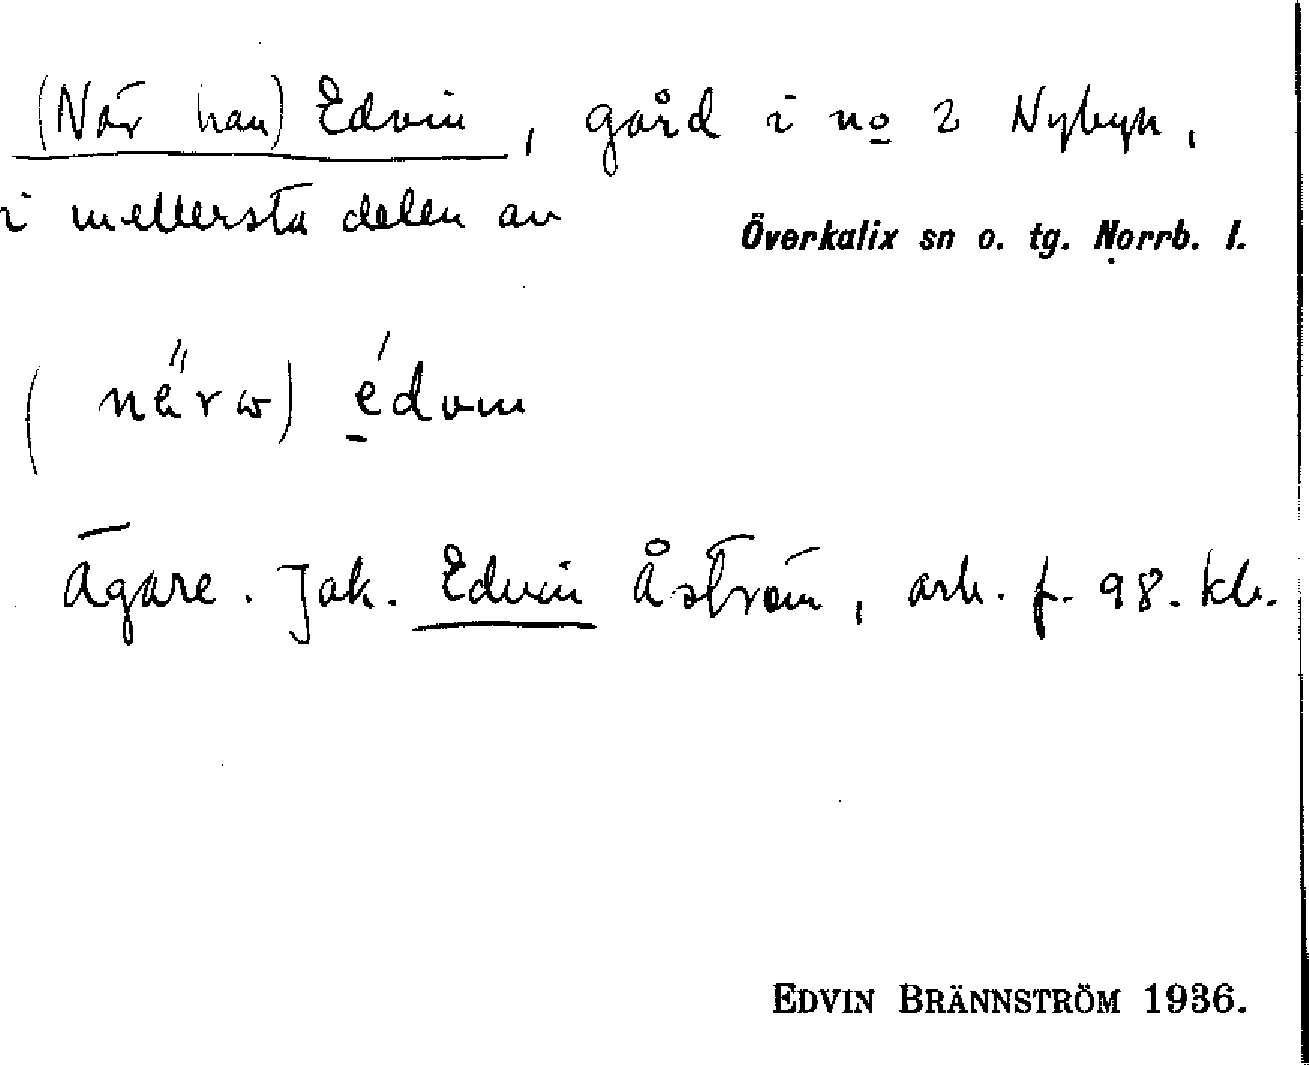 (När han) Edvin, gård i no 2 Nybyn,
i mellersta delen av
Överkalix sn o. tg. Norrb. l.
Ägare. Jak. Edvin Åström, arb. f. 98. kb.
EDVIN BRÄNNSTRÖM 1936.